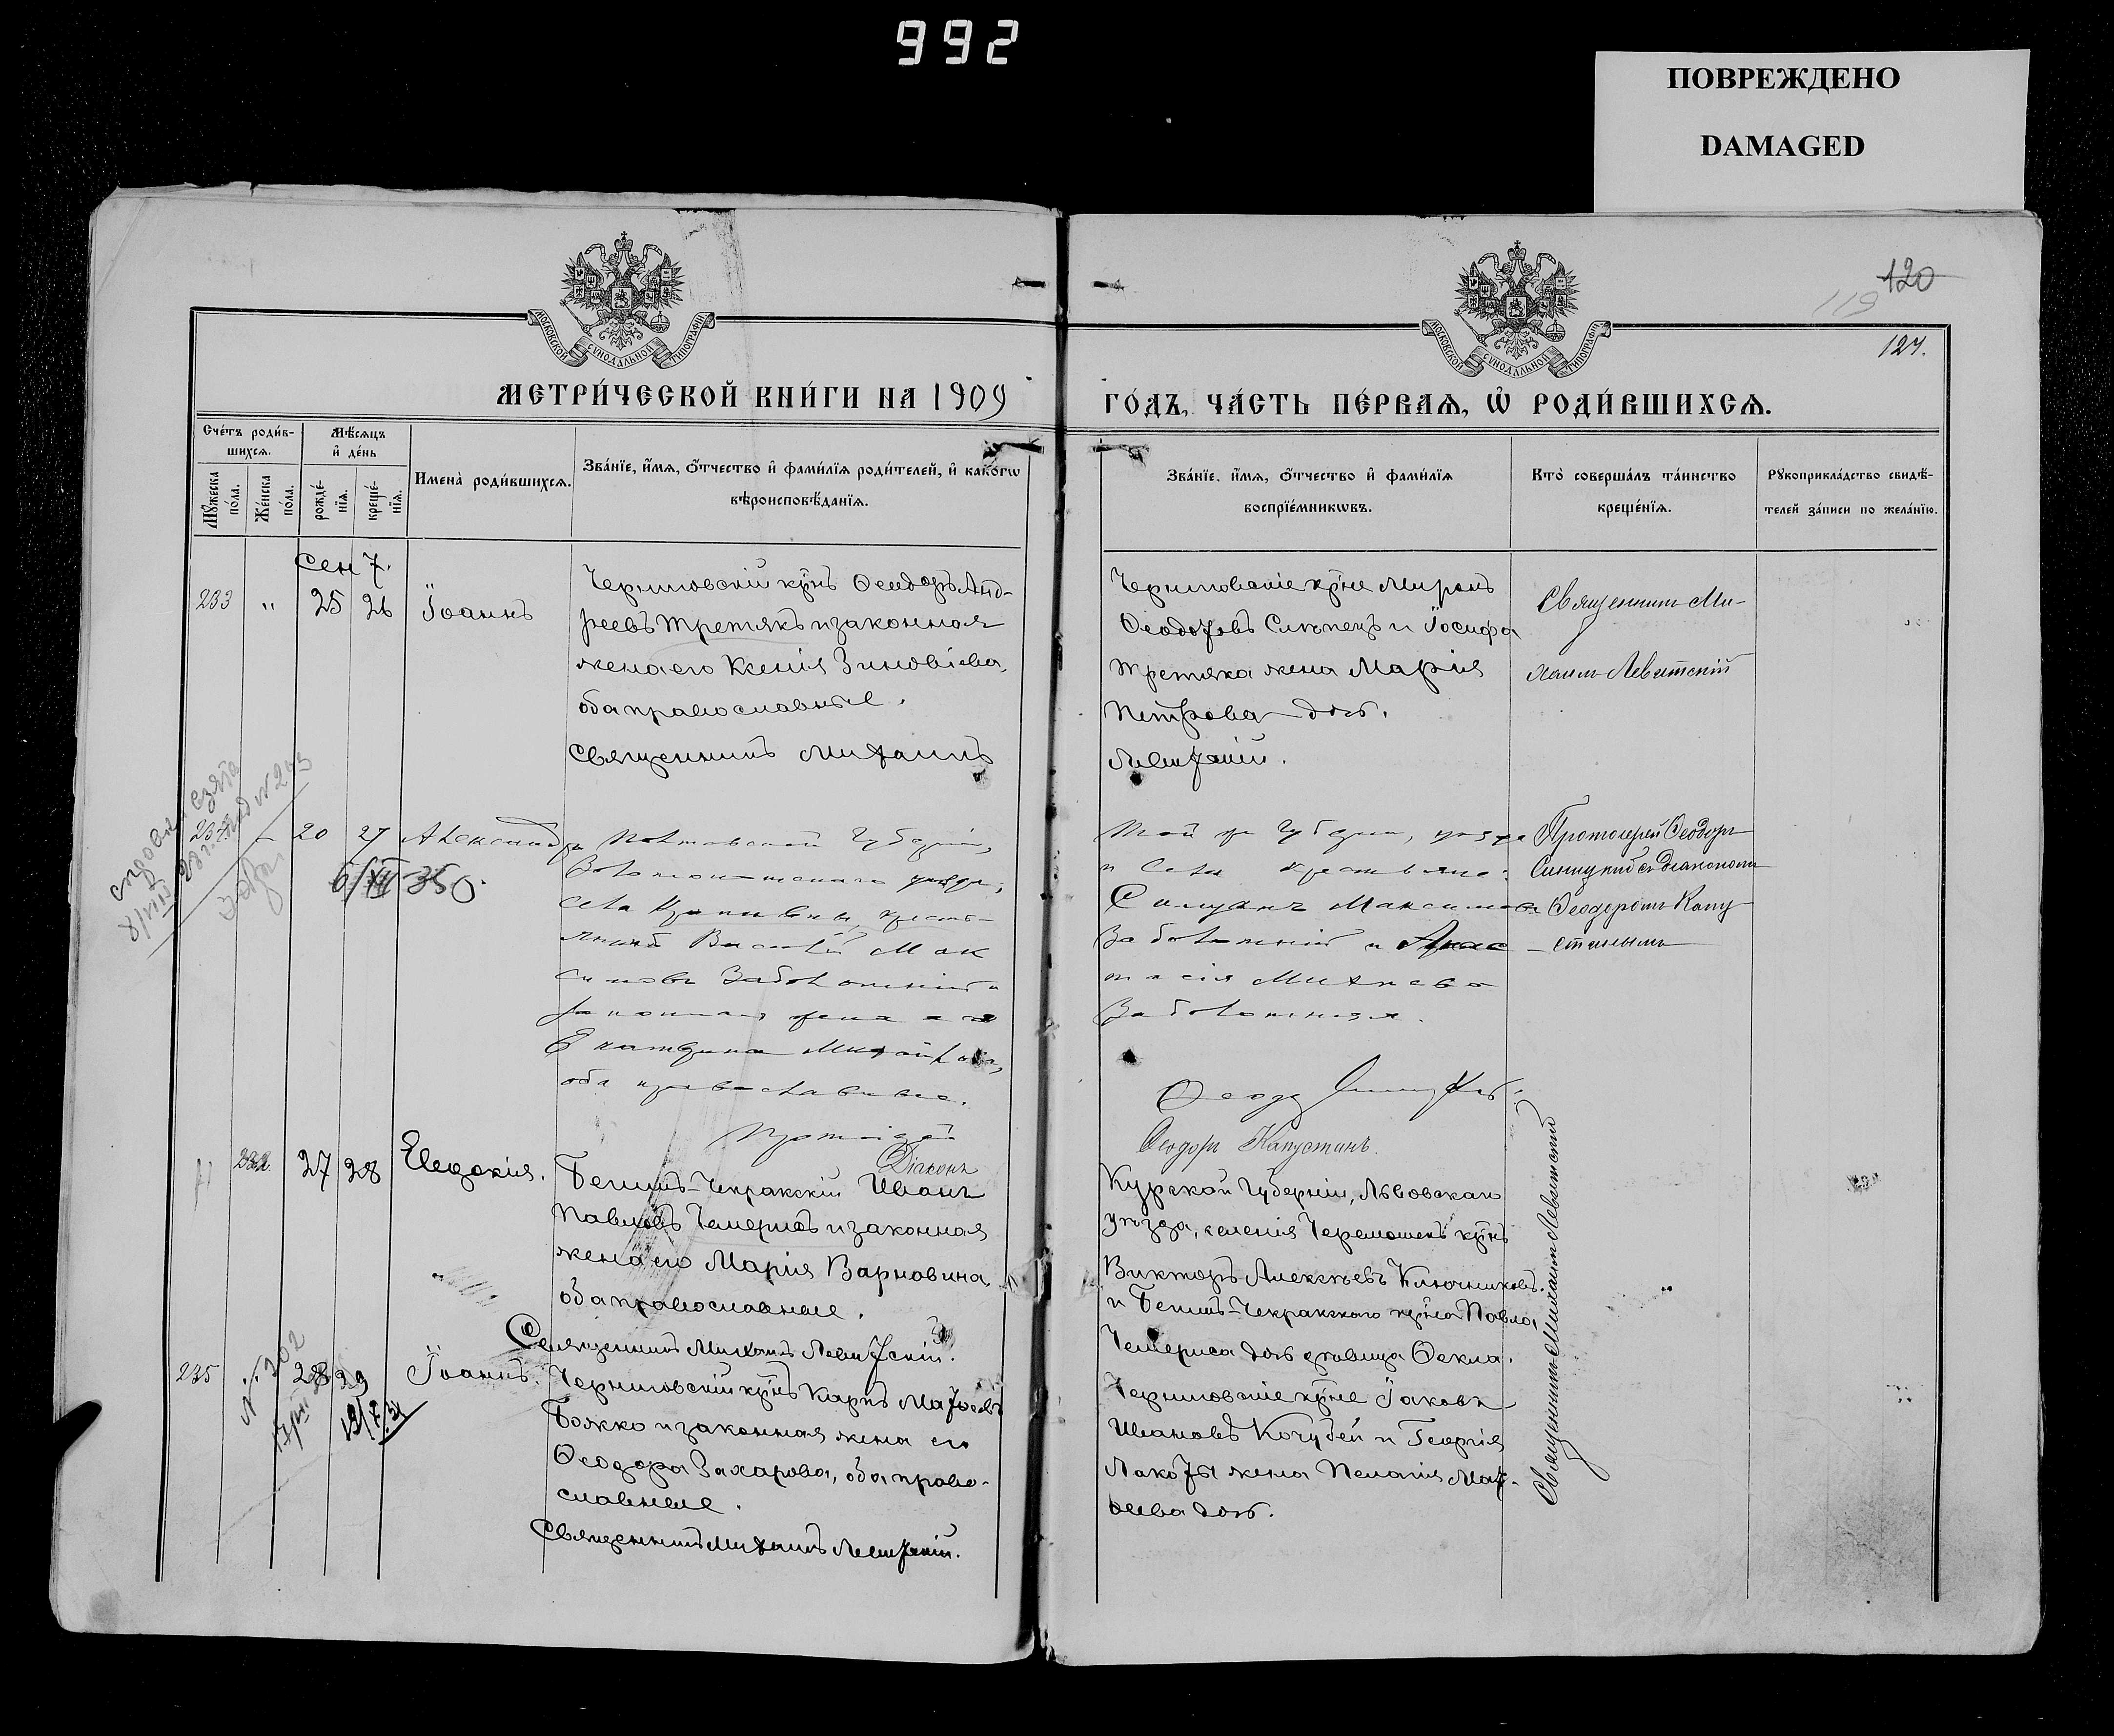 992
ПОВРЕЖДЕНО
DAMAGED
МОСКОВСКОЙ СѴНОДАЛЬНОЙ ТИПОГРАФІИ
МОСКОВСКОЙ СѴНОДАЛЬНОЙ ТИПОГРАФІИ
120
119
127.
МЕТРИ́ЧЕСКОЙ КНИ́ГИ НА 1909
ГО́ДЪ, ЧА́СТЬ ПЕ́РВАѦ, Ѡ҆ РОДИ́ВШИХСѦ.
Сче́тъ роди́в-
шихсѧ.
Мꙋ́жеска по́ла.
Же́нска по́ла.
Мѣ́сѧцъ
и҆ де́нь
рожде́-
нїѧ.
креще́-
нїѧ.
Имена̀ роди́вшихсѧ.
Зва́нїе, и҆́мѧ, ѻ҆́тчество и҆ фами́лїѧ роди́телей, и҆ како́гѡ
вѣроисповѣ́данїѧ.
Зва́нїе, и҆́мѧ, ѻ҆́тчество и҆ фами́лїѧ
воспрїе́мникѡвъ.
Кто̀ соверша́лъ та́инство
креще́нїѧ.
Рꙋкоприкла́дство свидѣ́-
телей за́писи по жела́нїю.
Сен 7.
233 " 25 26 Іоаннъ
Черниговскій крнъ Ѳеодоръ Анд-
реевъ Третякъ и законная
жена его Ксенія Зиновіева,
оба православные.
Священникъ Михаилъ
Черниговскіе крне Миронъ
Ѳеодоровъ Слепецъ и Іосифа
Третяка жена Марія
Петрова дочь.
Левитскій.
Священникъ Ми-
хаилъ Левитскій
20 27 Александръ
6/XII 350
Полтавской Губерніи,
Золотоношскаго уезда,
села Кропивны, кресть-
янинъ Василій Мак
симовъ Заболотній и
законная жена его
Екатерина Михайлова,
оба православные.
Протоіерей
Діаконъ
Той же Губерніи, уезда
и села крестьяне:
Максимовъ
Заболотній и Анас
тасія Михнева
Заболотняя.
Ѳеодоръ Капустинъ.
Протоіерей Ѳеодоръ
Синицкій съ Діакономъ
Ѳеодоромъ Капу-
стинымъ
232 27 28 Евдокія.
Бешъ-Чекракскій Иванъ
Павловъ Чемерисъ и законная
жена его Марія Варновина,
оба православные.
Священникъ Михаилъ Левитскій.
Курской Губерніи, Львовскаго
уезда, селенія Черемошекъ крнъ
Викторъ Алексѣевъ Ключниковъ
и Бешъ-Чекракскаго крна Павла,
Чемериса дочь девица Ѳекла.
Священникъ Михаилъ Левитскій
235 28 29 Іоаннъ.
№ 302
Черниговскій крнъ Карпъ Матѳеевъ
Божко и законная жена его
Ѳеодора Захарова, оба право-
славные.
Священникъ Михаилъ Левитскій.
Черниговскіе крне Іаковъ
Ивановъ Кочубей и Георгія
Лакоты жена Пелагія Мат-
ѳеева дочь.